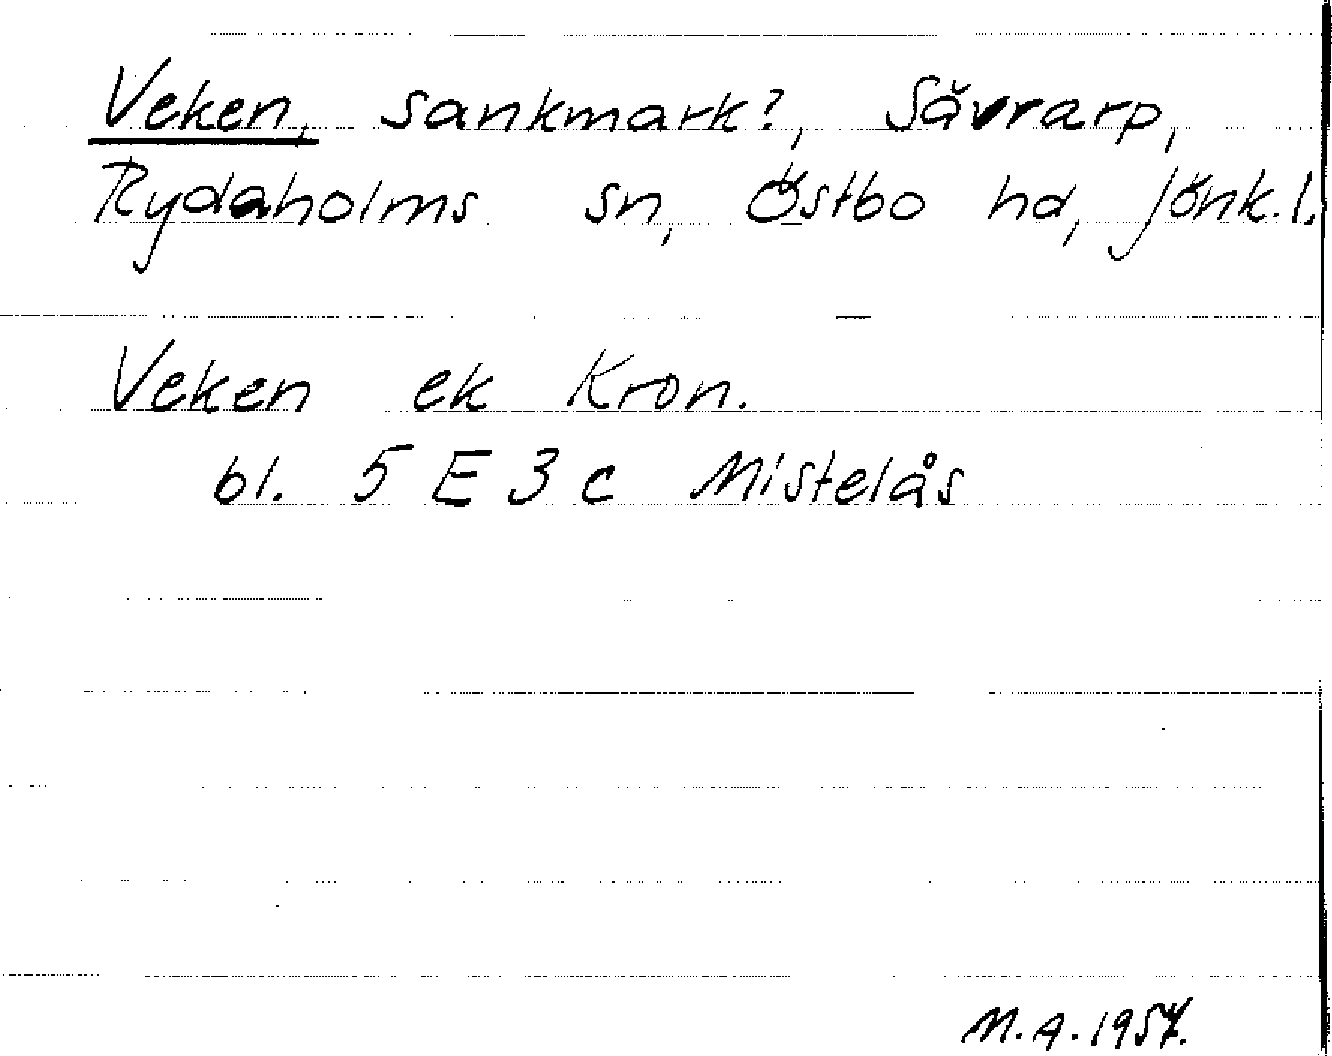 Veken, sankmark?, Sävrarp,
Rydaholms sn, Östbo hd, Jönk.l.
Veken ek Kron.
bl. 5 E 3 c Mistelås
M.A. 1957.